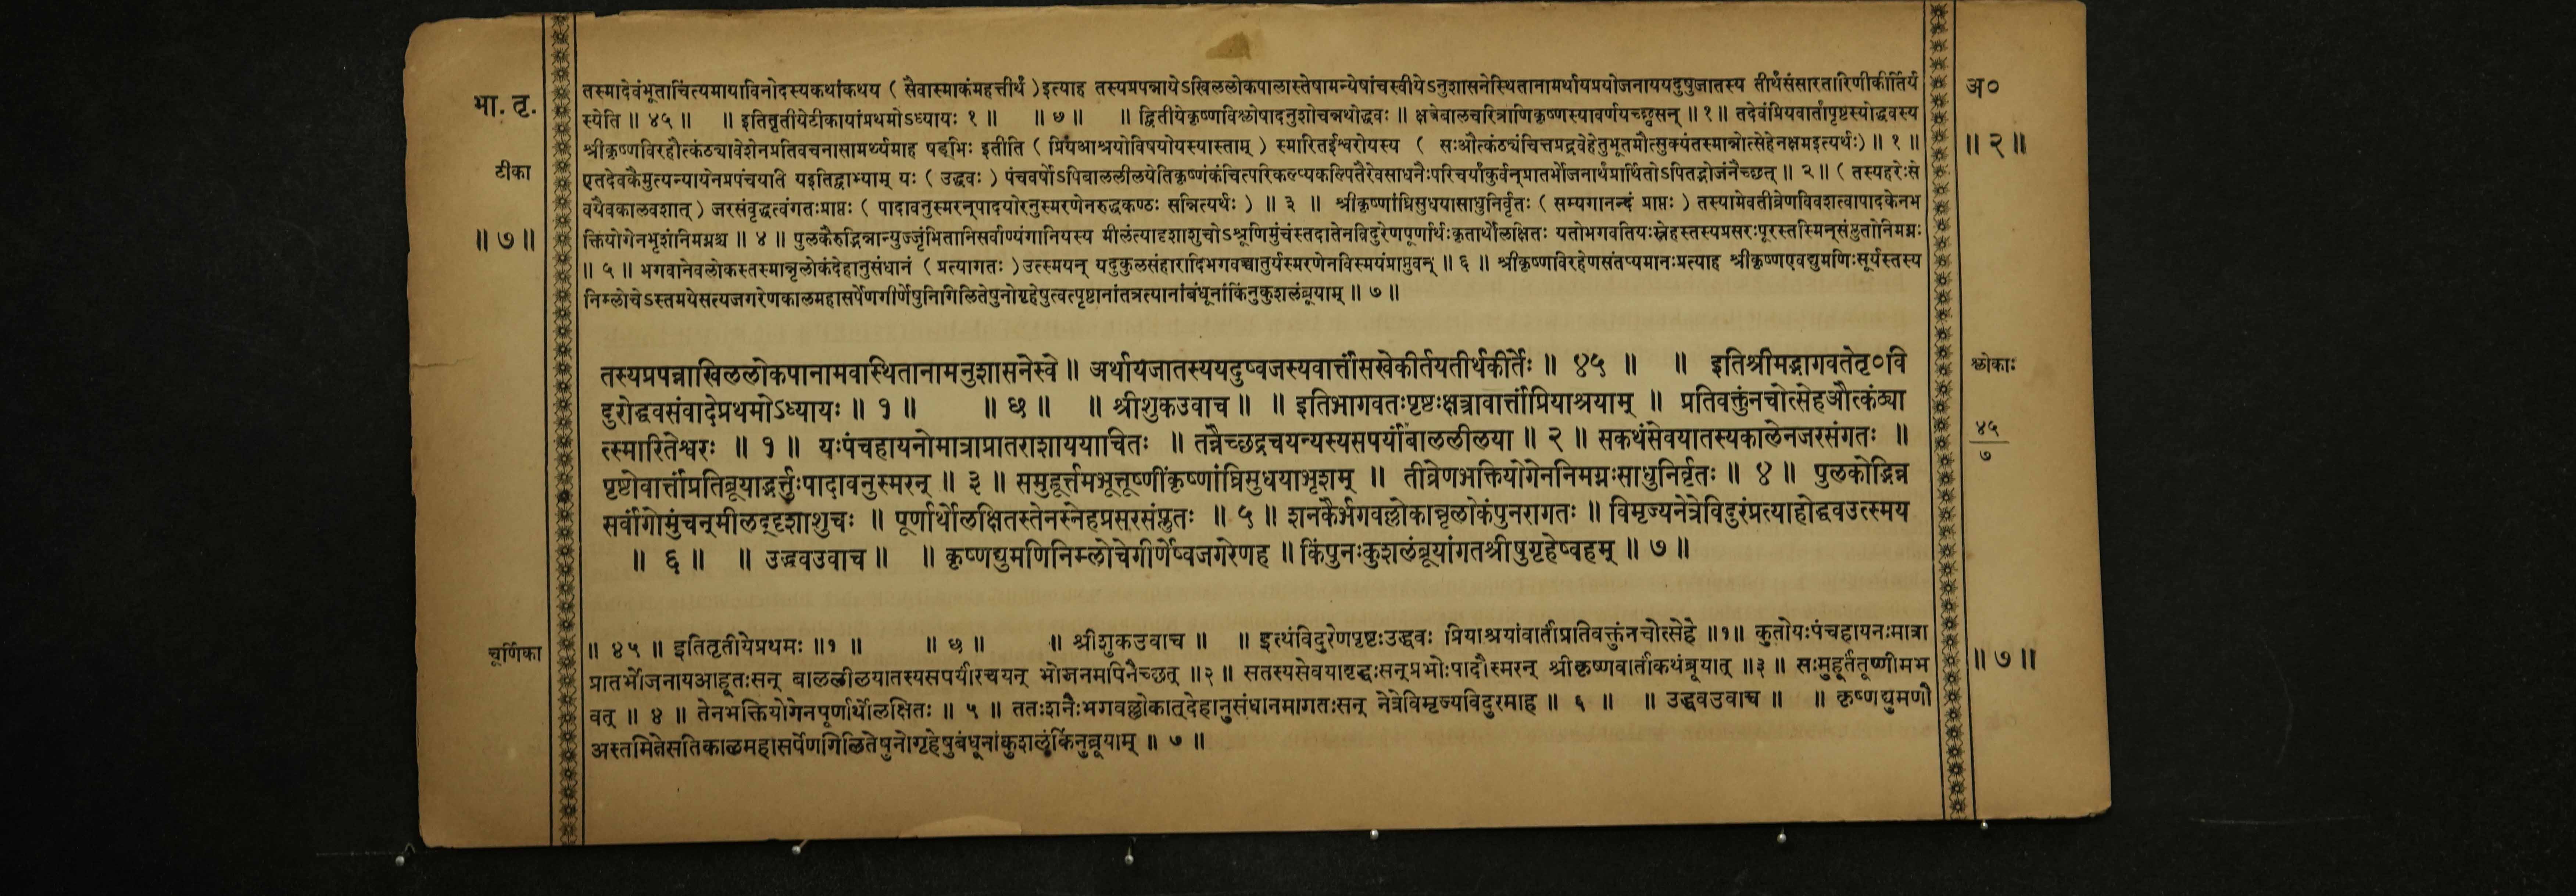 भा. तृ.
टीका
॥ ७ ॥
तस्मादेवंभूताचिंत्यमायाविनोदस्यकथांकथय ( सैवास्माकंमहत्तीर्थं ) इत्याह तस्यप्रपन्नायेऽखिललोकपालास्तेषामन्येषांचस्वीयेऽनुशासनेस्थितानामर्थायप्रयोजनाययदुषुजातस्य तीर्थंसंसारतारिणीकीर्तिर्य
स्येति ॥ ४५ ॥ ॥ इतितृतीयेटीकायांप्रथमोऽध्यायः १ ॥ ॥ ७ ॥ ॥ द्वितीयेकृष्णविश्लेषादनुशोचन्नथोद्धवः ॥ क्षत्रेबालचरित्राणिकृष्णस्यावर्णयच्छ्वसन् ॥ १ ॥ तदेवंप्रियवार्तांपृष्टस्योद्धवस्य
श्रीकृष्णविरहौत्कंठ्यावेशेनप्रतिवचनासामर्थ्यमाह षड्भिः इतीति ( प्रियआश्रयोविषयोयस्यास्ताम् ) स्मारितईश्वरोयस्य ( सःऔत्कंठ्यंचित्तप्रद्रवेहेतुभूतमौत्सुक्यंतस्मान्नोत्सेहेनक्षमइत्यर्थः) ॥ १ ॥
एतदेवकैमुत्यन्यायेनप्रपंचयति यइतिद्वाभ्याम् यः ( उद्धवः ) पंचवर्षोऽपिबाललीलयेतिकृष्णंकंचित्परिकल्प्यकल्पितैरेवसाधनैःपरिचर्यांकुर्वन्प्रातर्भोजनार्थंप्रार्थितोऽपितद्भोजंनैच्छत् ॥ २ ॥ ( तस्यहरेःसे
वयैवकालवशात् ) जरसंवृद्धत्वंगतःप्राप्तः ( पादावनुस्मरन्पादयोरनुस्मरणेनरुद्धकण्ठः सन्नित्यर्थः ) ॥ ३ ॥ श्रीकृष्णांघ्रिसुधयासाधुनिर्वृतः ( सम्यगानन्दं प्राप्तः ) तस्यामेवतीव्रेणविवशत्वापादकेनभ
क्तियोगेनभृशंनिमग्नश्च ॥ ४ ॥ पुलकैरुद्भिन्नान्युज्जृंभितानिसर्वाण्यंगानियस्य मीलंत्यादृशाशुचोऽश्रूणिमुंचंस्तदातेनविदुरेणपूर्णार्थःकृतार्थोलक्षितः यतोभगवतियःस्नेहस्तस्यप्रसरःपूरस्तस्मिन्संप्लुतोनिमग्नः
॥ ५ ॥ भगवानेवलोकस्तस्मान्नृलोकंदेहानुसंधानं ( प्रत्यागतः ) उत्स्मयन् यदुकुलसंहारादिभगवच्चातुर्यस्मरणेनविस्मयंप्राप्नुवन् ॥ ६ ॥ श्रीकृष्णविरहेणसंतप्यमानःप्रत्याह श्रीकृष्णएवद्युमणिःसूर्यस्तस्य
निम्लोचेऽस्तमयेसत्यजगरेणकालमहासर्पेणगीर्णेषुनिगिलितेषुनोगृहेषुत्वत्पृष्टानांतत्रत्यानांबंधूनांकिंनुकुशलंब्रूयाम् ॥ ७ ॥
तस्यप्रपन्नाखिललोकपानामवास्थितानामनुशासनेस्वे ॥ अर्थायजातस्ययदुष्वजस्यवार्त्तांसखेकीर्तयतीर्थकीर्तेः ॥ ४५ ॥ ॥ इतिश्रीमद्भागवतेतृ०वि
दुरोद्धवसंवादेप्रथमोऽध्यायः ॥ १ ॥ ॥ छ ॥ ॥ श्रीशुकउवाच ॥ ॥ इतिभागवतःपृष्टःक्षत्रावार्त्तांप्रियाश्रयाम् ॥ प्रतिवक्तुंनचोत्सेहऔत्कंठ्या
त्स्मारितेश्वरः ॥ १ ॥ यःपंचहायनोमात्राप्रातराशाययाचितः ॥ तन्नैच्छद्रचयन्यस्यसपर्यांबाललीलया ॥ २ ॥ सकथंसेवयातस्यकालेनजरसंगतः ॥
पृष्टोवार्त्तांप्रतिब्रूयाद्भर्त्तुःपादावनुस्मरन् ॥ ३ ॥ समुहूर्त्तमभूत्तूष्णींकृष्णांघ्रिसुधयाभृशम् ॥ तीव्रेणभक्तियोगेननिमग्नःसाधुनिर्वृतः ॥ ४ ॥ पुलकोद्भिन्न
सर्वांगोमुंचन्मीलद्दृशाशुचः ॥ पूर्णार्थोलक्षितस्तेनस्नेहप्रसरसंप्लुतः ॥ ५ ॥ शनकैर्भगवल्लोकान्नृलोकंपुनरागतः ॥ विमृज्यनेत्रेविदुरंप्रत्याहोद्धवउत्स्मय
॥ ६ ॥ ॥ उद्धवउवाच ॥ ॥ कृष्णद्युमणिनिम्लोचेगीर्णेष्वजगरेणह ॥ किंपुनःकुशलंब्रूयांगतश्रीषुगृहेष्वहम् ॥ ७ ॥
चूर्णिका
॥ ४५ ॥ इतितृतीयेप्रथमः ॥१ ॥ ॥ छ ॥ ॥ श्रीशुकउवाच ॥ ॥ इत्थंविदुरेणपृष्टःउद्धवः प्रियाश्रयांवार्तांप्रतिवक्तुंनचोत्सेहे ॥१॥ कुतोयःपंचहायनःमात्रा
प्रातर्भोजनायआहूतःसन् बाललीलयातस्यसपर्यांरचयन् भोजनमपिनैच्छत् ॥२॥ सतस्यसेवयावृद्धःसन्प्रभोःपादौस्मरन् श्रीकृष्णवार्ताकथंब्रूयात् ॥३ ॥ सःमुहूर्ततूष्णीमभ
वत् ॥ ४ ॥ तेनभक्तियोगेनपूर्णार्थोलक्षितः ॥ ५ ॥ ततःशनैःभगवल्लोकात्देहानुसंधानमागतःसन् नेत्रेविमृज्यविदुरमाह ॥ ६ ॥ ॥ उद्धवउवाच ॥ ॥ कृष्णद्युमणौ
अस्तमितेसतिकाळमहासर्पेणगिळितेषुनोगृहेषुबंधूनांकुशलंकिंनुब्रूयाम् ॥ ७ ॥
अ०
॥ २ ॥
श्लोकाः
४५
७
॥ ७ ॥